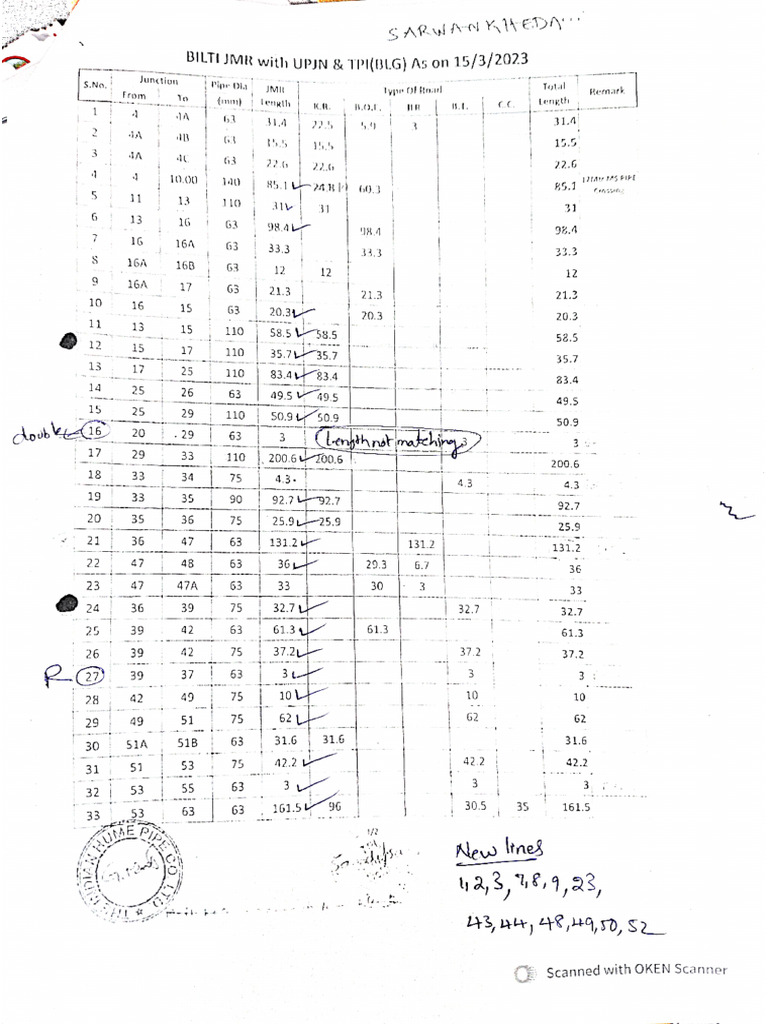 SARWANKHEDA...
BILTI JMR with UPJN & TPI(BLG) As on 15/3/2023
S.No. Junction Pipe Dia JMR Type Of Road Total Remark
From To (mm) Length K.R. B.O.E. BR B.I. C.C. Length
1 4 4A 63 31.4 22.5 5.9 3 31.4
2 4A 4B 63 15.5 15.5 15.5
3 4A 4C 63 22.6 22.6 22.6
4 4 10.00 140 85.1 24.8 60.3 85.1 12Mtr MS PIPE Crossing
5 11 13 110 31 31 31
6 13 16 63 98.4 98.4 98.4
7 16 16A 63 33.3 33.3 33.3
8 16A 16B 63 12 12 12
9 16A 17 63 21.3 21.3 21.3
10 16 15 63 20.3 20.3 20.3
11 13 15 110 58.5 58.5 58.5
12 15 17 110 35.7 35.7 35.7
13 17 25 110 83.4 83.4 83.4
14 25 26 63 49.5 49.5 49.5
15 25 29 110 50.9 50.9 50.9
double 16 20 29 63 3 Length not matching 3 3
17 29 33 110 200.6 200.6 200.6
18 33 34 75 4.3 4.3 4.3
19 33 35 90 92.7 92.7 92.7
20 35 36 75 25.9 25.9 25.9
21 36 47 63 131.2 131.2 131.2
22 47 48 63 36 29.3 6.7 36
23 47 47A 63 33 30 3 33
24 36 39 75 32.7 32.7 32.7
25 39 42 63 61.3 61.3 61.3
26 39 42 75 37.2 37.2 37.2
R 27 39 37 63 3 3 3
28 42 49 75 10 10 10
29 49 51 75 62 62 62
30 51A 51B 63 31.6 31.6 31.6
31 51 53 75 42.2 42.2 42.2
32 53 55 63 3 3 3
33 53 63 63 161.5 96 30.5 35 161.5
THE INDIAN HUME PIPE CO. LTD.
New lines
1, 2, 3, 7, 8, 9, 23,
43, 44, 48, 49, 50, 52
Scanned with OKEN Scanner